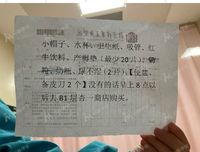 小帽子、水杯、卫生纸、吸管、红
牛饮料、产褥垫（最少20片）、
奶瓶、尿不湿（2片）【便盆、
备皮刀2个】没有的话早上8点以
后去B1层杏一商店购买。